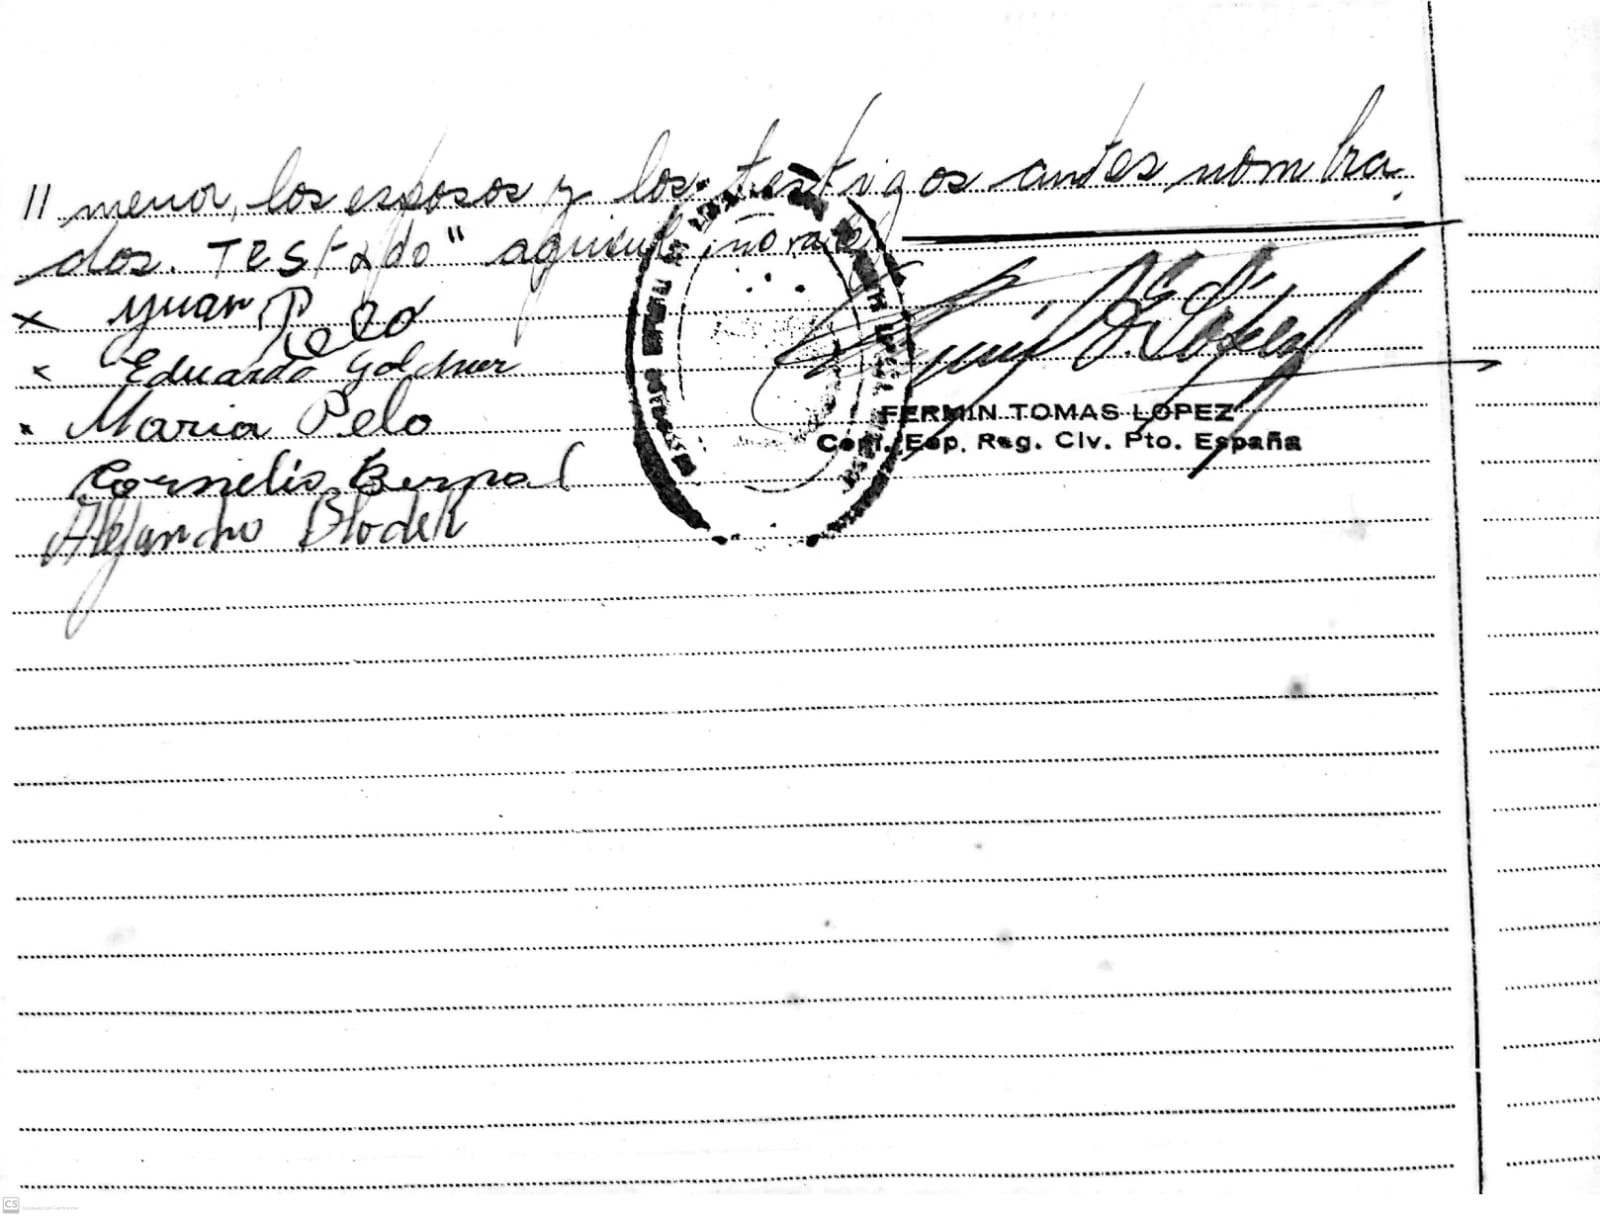 " menor, los esposos y los testigos antes nombra-
dos. Testado "agricul no vale
x Juan Pelo
x Eduardo
x Maria Pelo
Cornelis Bernal
Alejandro Blodek
FERMIN TOMAS LOPEZ
Esp. Reg. Civ. Pto. España
CS